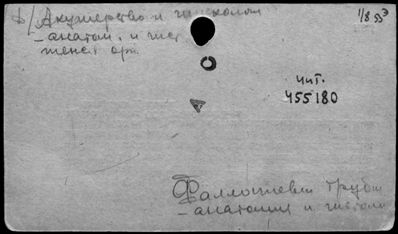 Б/ Акушерство и гинекология
-анатом. и гист
женск орг.
11/8 53
чит.
455180
Фаллопиевы трубы
-анатомия и гистоло